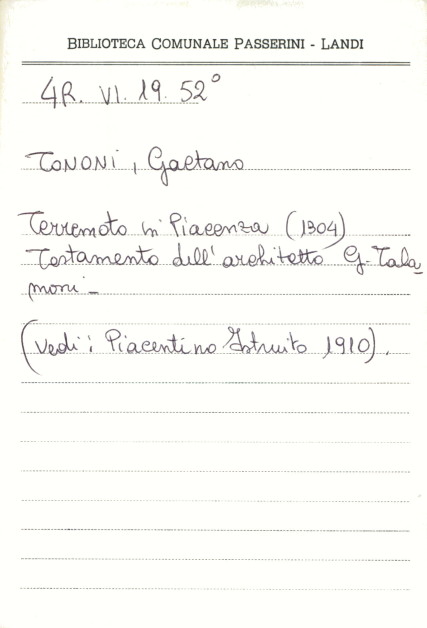 BIBLIOTECA COMUNALE PASSERINI - LANDI
4R. VI. 19. 52°
TONONI, Gaetano
Terremoto in Piacenza (1304)
Testamento dell'architetto G. Tala_
moni -
(vedi: Piacentino Istruito 1910).